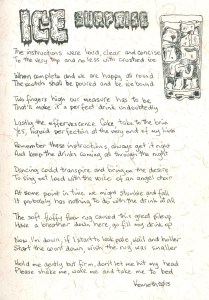 ICE SURPRISE
The instructions were loud, clear and concise
To the very top and no less with crushed ice
When complete and we are happy all round
The scotch shall be poured and be ice bound
Two fingers high our measure has to be
That's make it a perfect drink undoubtedly
Lastly the effervescence Coke, take to the brim
Yes, liquid perfection at the very end of my limb
Remember these instructions, always get it right
And keep the drinks coming all through the night
Dancing could transpire and bring on the desire
To sing out loud with the voice of an angel choir
At some point in time we might stumble and fall
It probably has nothing to do with the drink at all
The soft fluffy floor rug caused this great pileup
Have a breather down here, go fill my drink up
Now I'm down, if I start to look pale, wail and holler
Start the count down, wish the rug was smaller
Hold me gently but firm, don't let me hit my head
Please shake me, wake me and take me to bed